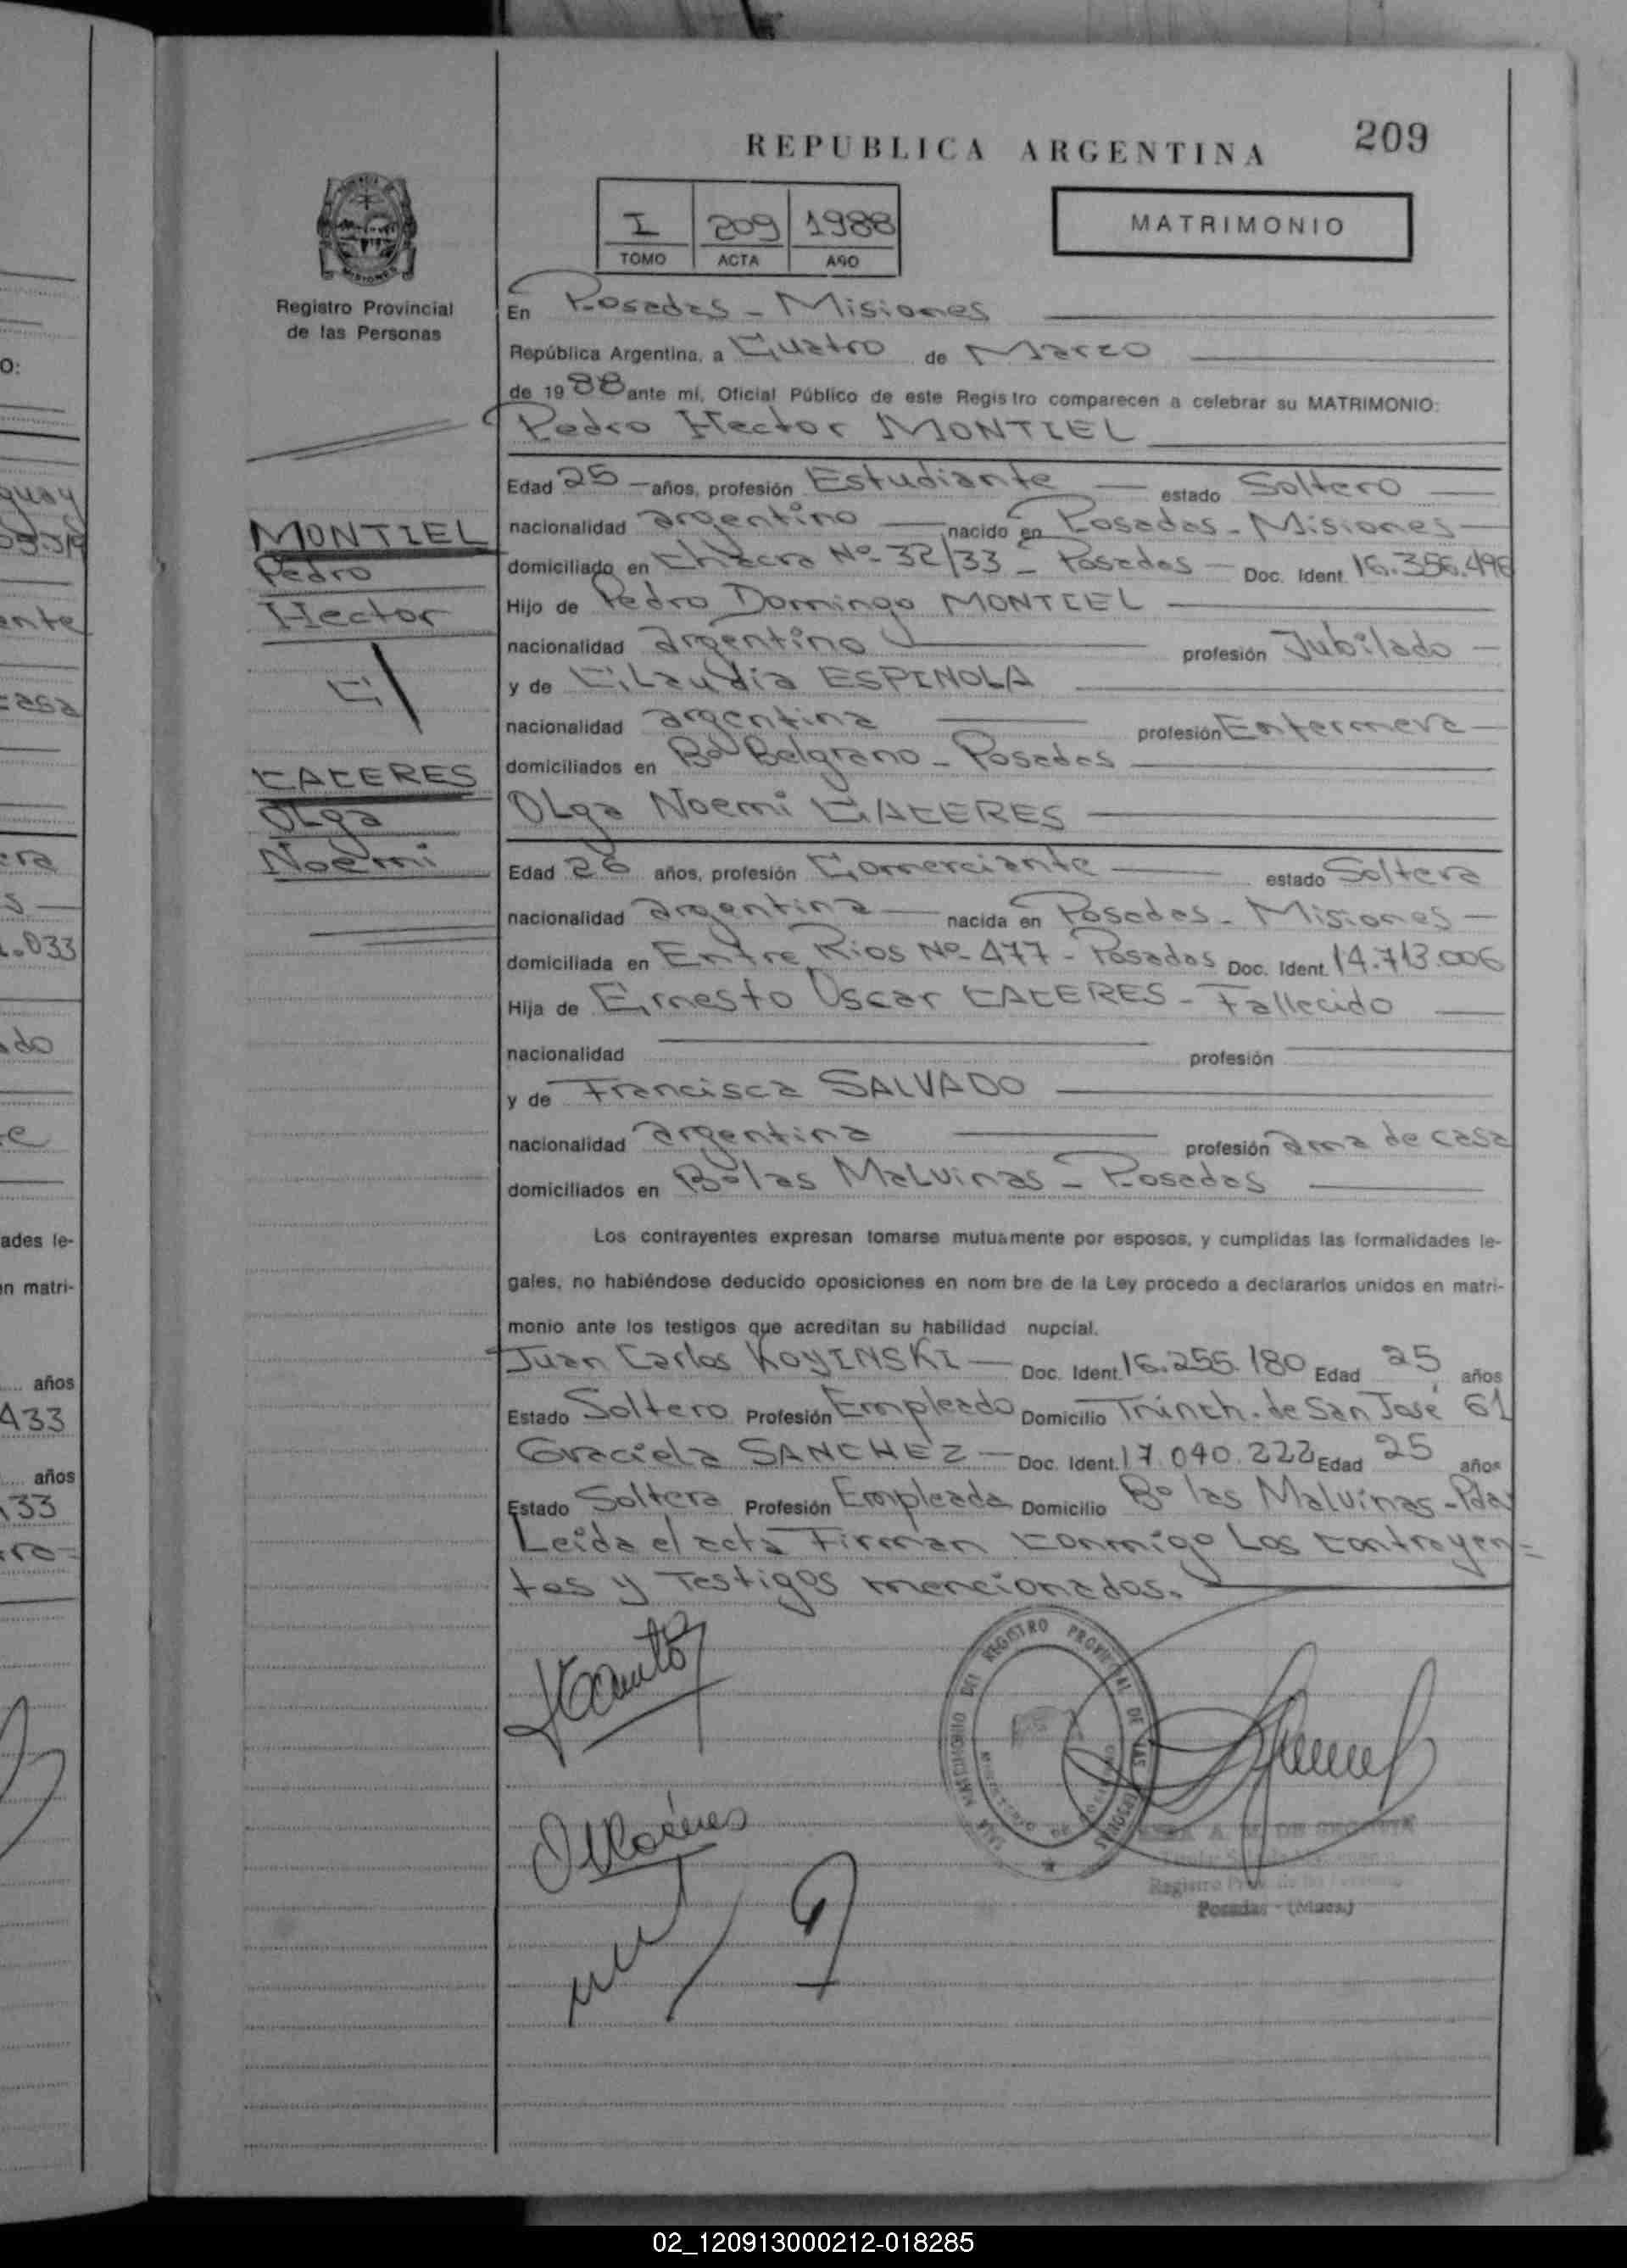 209
REPUBLICA ARGENTINA
MATRIMONIO
I 209 1988
TOMO ACTA AÑO
MISIONES
Registro Provincial
de las Personas
En Posadas - Misiones
República Argentina, a Cuatro de Marzo
de 1988 ante mí, Oficial Público de este Registro comparecen a celebrar su MATRIMONIO:
Pedro Hector MONTIEL
Edad 25 años, profesión Estudiante estado Soltero
nacionalidad argentino nacido en Posadas - Misiones
domiciliado en Chacra Nº 32/33 - Posadas - Doc. Ident. 16.356.496
Hijo de Pedro Domingo MONTIEL
nacionalidad argentino profesión Jubilado
y de Claudia ESPINOLA
nacionalidad argentina profesión Enfermera
domiciliados en Bº Belgrano - Posadas
Olga Noemi CACERES
Edad 26 años, profesión Comerciante estado Soltera
nacionalidad argentina nacida en Posadas - Misiones
domiciliada en Entre Rios Nº 477 - Posadas Doc. Ident. 14.713.006
Hija de Ernesto Oscar CACERES - Fallecido
nacionalidad profesión
y de Francisca SALVADO
nacionalidad argentina profesión ama de casa
domiciliados en Bº las Malvinas - Posadas
Los contrayentes expresan tomarse mutuamente por esposos, y cumplidas las formalidades le-
gales, no habiéndose deducido oposiciones en nom bre de la Ley procedo a declararlos unidos en matri-
monio ante los testigos que acreditan su habilidad nupcial.
Juan Carlos KOYINSKI - Doc. Ident. 16.256.180 Edad 25 años
Estado Soltero Profesión Empleado Domicilio Trinch. de San José 61
Graciela SANCHEZ - Doc. Ident. 17.040.222 Edad 25 años
Estado Soltera Profesión Empleada Domicilio Bº las Malvinas - Pdas
Leida el acta Firman conmigo Los contrayen=
tes y Testigos mencionados.
MONTIEL
Pedro
Hector
C/
CACERES
Olga
Noemi
REGISTRO PROVINCIAL DE LAS PERSONAS
MATRIMONIO DEL
Registro Prov. de las
Posadas - (Mnes.)
O:
guay
ente
casa
era
1.033
ado
ades le-
en matri-
años
433
años
133
02_120913000212-018285